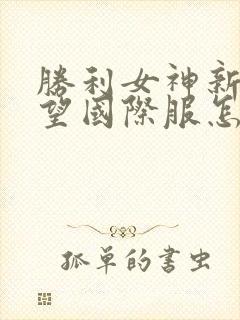 勝利女神新
望國際服怎
孤單的書虫